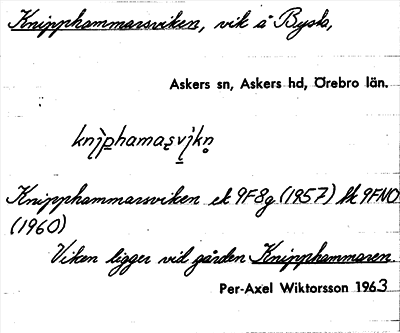 Knipphammarsviken, vik å Bysta,
Askers sn, Askers hd, Örebro län.
Knipphammarsviken ek 9F8g (1957) hk 9FNO
(1960)
Viken ligger vid gården Knipphammaren.
Per-Axel Wiktorsson 1963